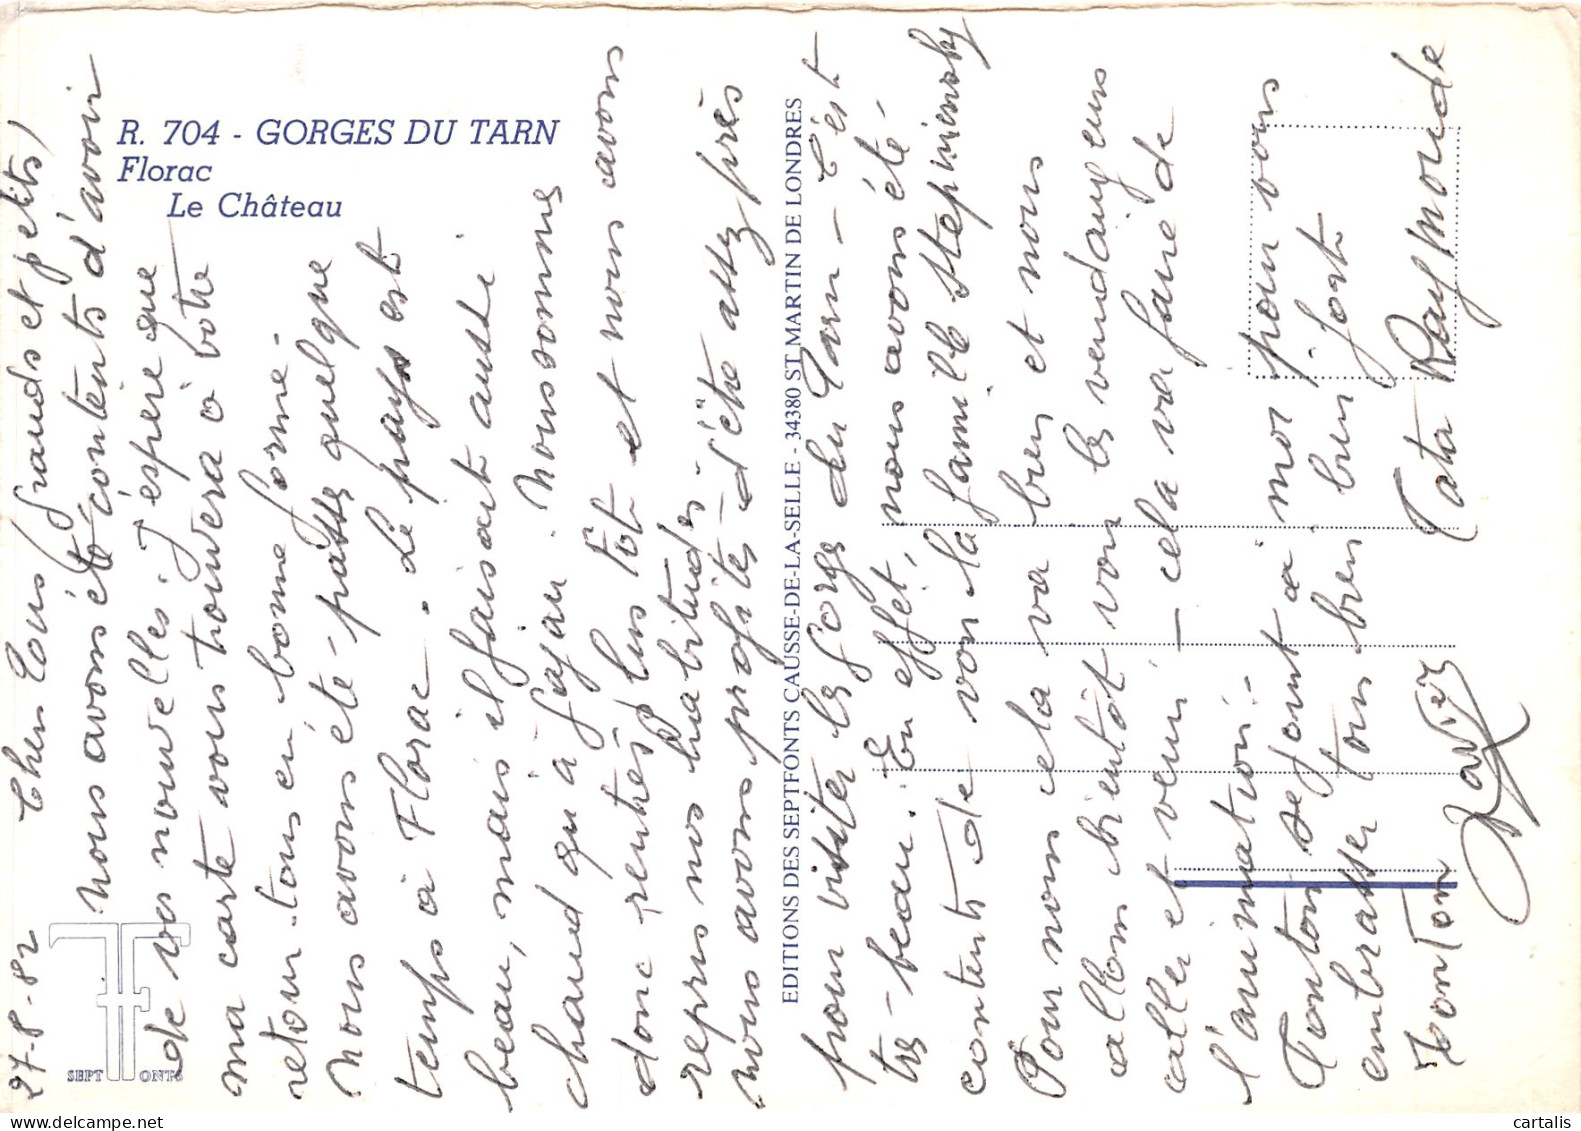 R. 704 - GORGES DU TARN
Florac
Le Château
SEPT FONTS
EDITIONS DES SEPTFONTS CAUSSE-DE-LA-SELLE - 34380 ST MARTIN DE LONDRES
27-8-82 Chers Tous grands et petits,
nous avons été contents d'avoir
de vos nouvelles. J'espère que
ma carte vous trouvera à votre
retour tous en bonne forme -
Nous avons été passer quelque
temps à Florac. Le pays est
beau, mais il faisait aussi
chaud qu'à Gajan. Nous sommes
donc rentrés plus tôt et nous avons
repris nos habitudes.
nous avons profités d'être assez près
pour visiter les Gorges du Tarn - C'est
très beau. En effet, nous avons été
contents de voir la famille Stepniensky
Pour nous cela va bien et nous
allons bientôt voir les vendangeurs
aller et venir - cela va faire de
l'animation. -
Tonton se joint à moi pour vous
embrasser tous bien bien fort
Tonton Tata Raymonde
Xavier
cartalis